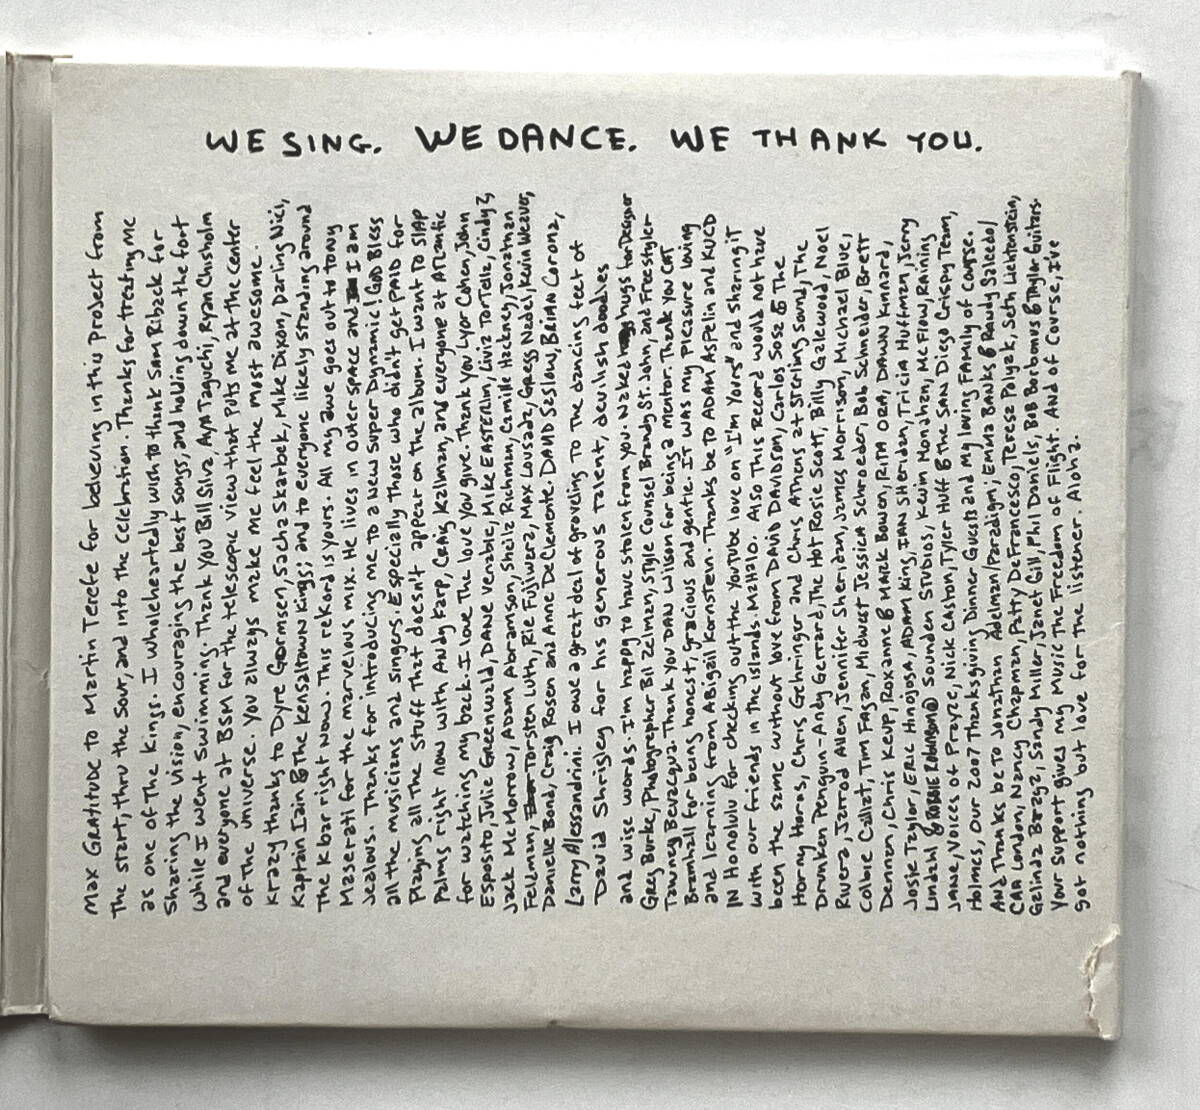 WE SING. WE DANCE. WE THANK YOU.
MAX GRATITUDE to MARTIN TEREFE FOR believing in this Project from
The start, thru the sour, and into the Celebration. Thanks for treating me
as one of The Kings. I wholeheartedly wish to thank Sam Riback for
Sharing the Vision, encouraging the best songs, and holding down the fort
while I went Swimming. Thank you Bill Silva, AYA Taguchi, Ryan Chisholm
and everyone at BSM for the telescopic view that puts me at the center
of the universe. You always make me feel the most awesome.
Krazy thanks to Dyre Gormsen, Sacha Skarbek, Mike Dixon, Darling Nici,
Kaptain Iain & The Kensaltown Kings; and to everyone likely standing around
The K bar right now. This rekord is yours. All my awe goes out to Tony
Maserati for the marvelous mix. He lives in outer space and I am
Jealous. Thanks for introducing me to a new super dynamic! GOD Bless
all the musicians and singers. Especially Those who didn't get PAID for
Playing all the stuff That doesn't appear on the album. I want to SLAP
Palms right now with Andy Karp, CRAIG Kalman, and everyone at ATLANTIC
for watching my back. I love The love you give. Thank you Lyor Cohen, John
Esposito, Julie Greenwald, DANE Venable, Mike EASTERLIN, Livia TorTella, Cindy Z,
Jack McMorrow, ADAM Abramson, Sheila Richman, Camille Hackney, Jonathan
Feldman, Torsten Luth, Rie Fujiwara, Max Lousada, Gregg Nadel, Kevin Weaver,
Danielle Bond, Craig Rosen and Anne DeClemente. DAVID SESLOW, BRIAN Corona,
Larry Alessandrini. I owe a great deal of groveling to The dancing feet of
David Shrigley for his generous talent, devilish doodles
and wise words. I'm happy to have stolen from you. Naked hugs for Designer
Greg Burke, Photographer Bil Zelman, STYLE Counsel Brandy St. John, and Freestyler
Tawney Bevacqua. Thank you DAN Wilson for being a mentor. Thank you CAT
Bramhall for being honest, gracious and gentle. IT was my Pleasure loving
and learning from Abigail Kornstein. Thanks be to ADAM ASPELIN and KUCD
IN Honolulu for checking out the YouTube love on "I'm Yours" and sharing IT
with our friends in the islands. MaHalo. Also This Record would not have
been the same without love from DAVID DAVIDSON, Carlos Sosa & The
Horny Horns, Chris Gehringer and Chris ATHENS at STerling Sound, The
Drunken Penguin - Andy Gerrard, The Hot Rosie Scott, Billy Galewood, Noel
Rivera, Jarrod Allen, Jennifer Sheridan, James Morrison, Michael Blue,
Colbie Caillat, Tim Fagan, Midwest Jessica Schroeder, Bob Schneider, Brett
Dennen, Chris KEUP, Roxanne & MARK Bowen, RITA ORA, DAWN Kinnard,
Josie Taylor, ERIC Hinojosa, ADAM King, IAN SHeridan, Tricia Huffman, Jerry
Lindahl & ROBBIE ROBINSON @ Sounden STUDIOS, Kevin Monahan, McFlow, Raining
Jane, Voices of Prayze, Nick Caston, Tyler Huff & The SAN Diego Crispy Team,
Holmes, Our 2007 Thanksgiving Dinner Guests and My loving FAMILY of course.
And Thanks be to Jonathan Adelman/Paradigm; Emma BANKS & Paul